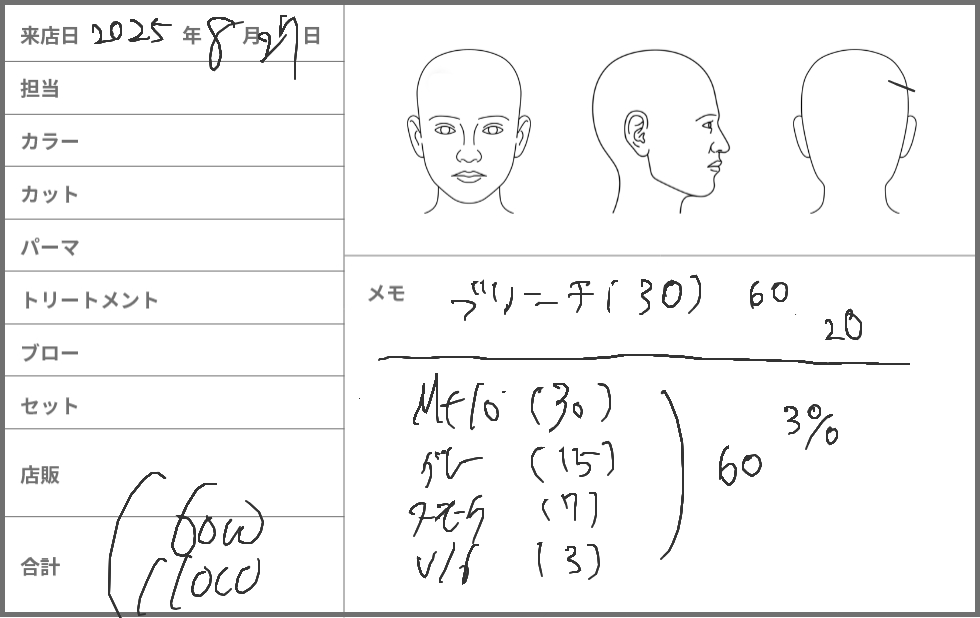 来店日 2025 年 8 月 27 日
担当
カラー
カット
パーマ
トリートメント
ブロー
セット
店販
合計
メモ ブリーチ(30) 60
20
(30)
グレー (15)
(7)
V/6 (3)
60 3%